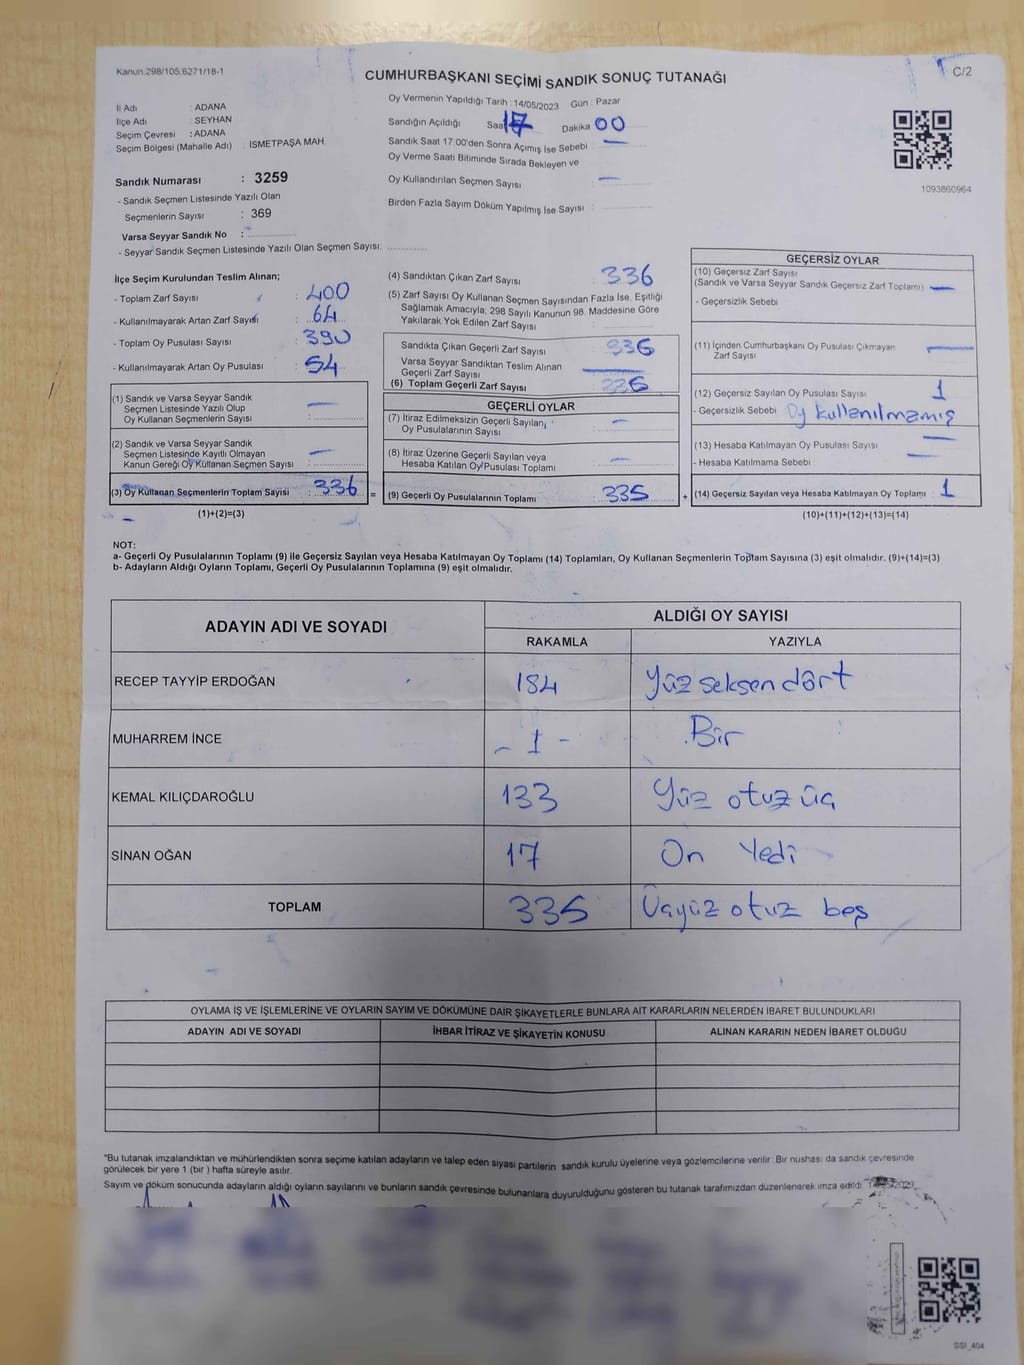 Kanun.298/105,6271/18-1
CUMHURBAŞKANI SEÇİMİ SANDIK SONUÇ TUTANAĞI
C/2
İl Adı : ADANA
İlçe Adı : SEYHAN
Seçim Çevresi : ADANA
Seçim Bölgesi (Mahalle Adı) : İSMETPAŞA MAH.
Sandık Numarası : 3259
- Sandık Seçmen Listesinde Yazılı Olan
Seçmenlerin Sayısı : 369
Varsa Seyyar Sandık No :
- Seyyar Sandık Seçmen Listesinde Yazılı Olan Seçmen Sayısı:
Oy Vermenin Yapıldığı Tarih : 14/05/2023 Gün : Pazar
Sandığın Açıldığı Saat 17 Dakika 00
Sandık Saat 17:00'den Sonra Açımış İse Sebebi : —
Oy Verme Saati Bitiminde Sırada Bekleyen ve
Oy Kullandırılan Seçmen Sayısı : —
Birden Fazla Sayım Döküm Yapılmış İse Sayısı :
1093860964
İlçe Seçim Kurulundan Teslim Alınan;
- Toplam Zarf Sayısı : 400
- Kullanılmayarak Artan Zarf Sayısı : 64
- Toplam Oy Pusulası Sayısı : 390
- Kullanılmayarak Artan Oy Pusulası : 54
(1) Sandık ve Varsa Seyyar Sandık
Seçmen Listesinde Yazılı Olup
Oy Kullanan Seçmenlerin Sayısı : —
(2) Sandık ve Varsa Seyyar Sandık
Seçmen Listesinde Kayıtlı Olmayan
Kanun Gereği Oy Kullanan Seçmen Sayısı : —
(3) Oy Kullanan Seçmenlerin Toplam Sayısı : 336 =
(1)+(2)=(3)
(4) Sandıktan Çıkan Zarf Sayısı : 336
(5) Zarf Sayısı Oy Kullanan Seçmen Sayısından Fazla İse, Eşitliği
Sağlamak Amacıyla; 298 Sayılı Kanunun 98. Maddesine Göre
Yakılarak Yok Edilen Zarf Sayısı :
Sandıkta Çıkan Geçerli Zarf Sayısı : 336
Varsa Seyyar Sandıktan Teslim Alınan
Geçerli Zarf Sayısı : —
(6) Toplam Geçerli Zarf Sayısı : 336
GEÇERLİ OYLAR
(7) İtiraz Edilmeksizin Geçerli Sayılan
Oy Pusulalarının Sayısı : —
(8) İtiraz Üzerine Geçerli Sayılan veya
Hesaba Katılan Oy Pusulası Toplamı : —
(9) Geçerli Oy Pusulalarının Toplamı : 335 +
GEÇERSİZ OYLAR
(10) Geçersiz Zarf Sayısı
(Sandık ve Varsa Seyyar Sandık Geçersiz Zarf Toplamı) : —
- Geçersizlik Sebebi :
(11) İçinden Cumhurbaşkanı Oy Pusulası Çıkmayan
Zarf Sayısı : —
(12) Geçersiz Sayılan Oy Pusulası Sayısı : 1
- Geçersizlik Sebebi : Oy kullanılmamış
(13) Hesaba Katılmayan Oy Pusulası Sayısı : —
- Hesaba Katılmama Sebebi : —
(14) Geçersiz Sayılan veya Hesaba Katılmayan Oy Toplamı : 1
(10)+(11)+(12)+(13)=(14)
NOT:
a- Geçerli Oy Pusulalarının Toplamı (9) ile Geçersiz Sayılan veya Hesaba Katılmayan Oy Toplamı (14) Toplamları, Oy Kullanan Seçmenlerin Toplam Sayısına (3) eşit olmalıdır. (9)+(14)=(3)
b- Adayların Aldığı Oyların Toplamı, Geçerli Oy Pusulalarının Toplamına (9) eşit olmalıdır.
ADAYIN ADI VE SOYADI
ALDIĞI OY SAYISI
RAKAMLA YAZIYLA
RECEP TAYYİP ERDOĞAN 184 Yüz seksen dört
MUHARREM İNCE - 1 - Bir
KEMAL KILIÇDAROĞLU 133 Yüz otuz üç
SİNAN OĞAN 17 On Yedi
TOPLAM 335 Üçyüz otuz beş
OYLAMA İŞ VE İŞLEMLERİNE VE OYLARIN SAYIM VE DÖKÜMÜNE DAİR ŞİKAYETLERLE BUNLARA AİT KARARLARIN NELERDEN İBARET BULUNDUKLARI
ADAYIN ADI VE SOYADI İHBAR İTİRAZ VE ŞİKAYETİN KONUSU ALINAN KARARIN NEDEN İBARET OLDUĞU
*Bu tutanak imzalandıktan ve mühürlendikten sonra seçime katılan adayların ve talep eden siyasi partilerin sandık kurulu üyelerine veya gözlemcilerine verilir. Bir nüshası da sandık çevresinde
görülecek bir yere 1 (bir ) hafta süreyle asılır.
Sayım ve döküm sonucunda adayların aldığı oyların sayılarını ve bunların sandık çevresinde bulunanlara duyurulduğunu gösteren bu tutanak tarafımızdan düzenlenerek imza edildi.
SSI_404